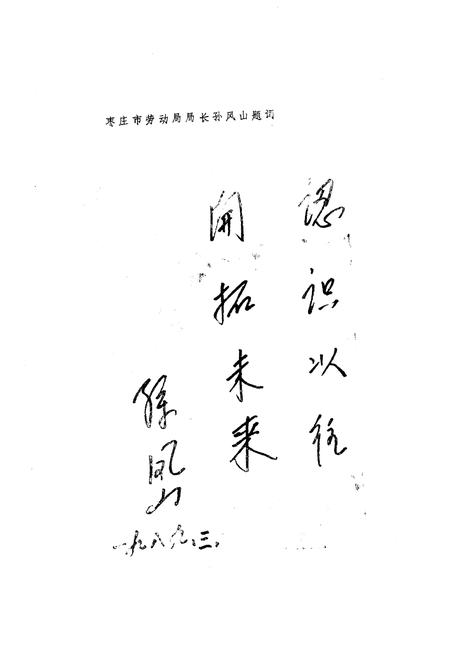 枣庄市劳动局局长孙凤山题词
認识以往
開拓未来
孫凤山
一九八九.三.